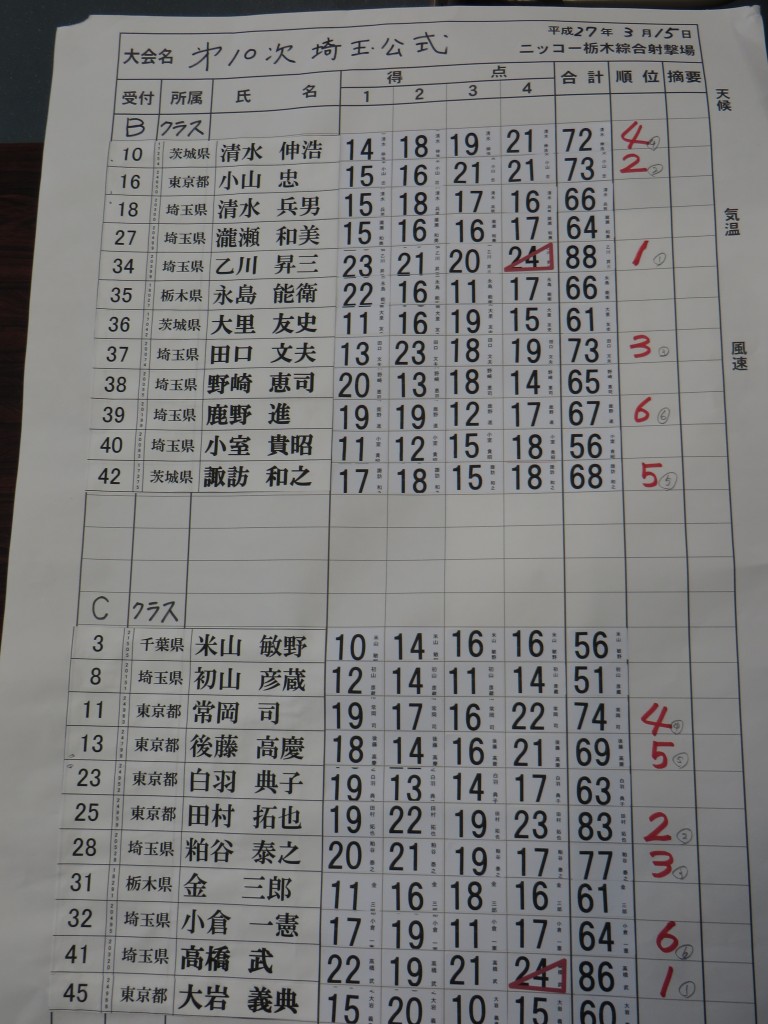 平成27年 3月15日
大会名 第10次 埼玉公式 ニッコー栃木綜合射撃場
受付 所属 氏名 得点 合計 順位 摘要
1 2 3 4
天候
気温
風速
B クラス
10 茨城県 清水 伸浩 14 18 19 21 72 4
16 東京都 小山 忠 15 16 21 21 73 2
18 埼玉県 清水 兵男 15 18 17 16 66
27 埼玉県 瀧瀬 和美 15 16 16 17 64
34 埼玉県 乙川 昇三 23 21 20 24 88 1
35 栃木県 永島 能衛 22 16 11 17 66
36 茨城県 大里 友史 11 16 19 15 61
37 埼玉県 田口 文夫 13 23 18 19 73 3
38 埼玉県 野崎 恵司 20 13 18 14 65
39 埼玉県 鹿野 進 19 19 12 17 67 6
40 埼玉県 小室 貴昭 11 12 15 18 56
42 茨城県 諏訪 和之 17 18 15 18 68 5
C クラス
3 千葉県 米山 敏野 10 14 16 16 56
8 埼玉県 初山 彦蔵 12 14 11 14 51
11 東京都 常岡 司 19 17 16 22 74 4
13 東京都 後藤 高慶 18 14 16 21 69 5
23 東京都 白羽 典子 19 13 14 17 63
25 東京都 田村 拓也 19 22 19 23 83 2
28 埼玉県 粕谷 泰之 20 21 19 17 77 3
31 栃木県 金 三郎 11 16 18 16 61
32 埼玉県 小倉 一憲 17 19 11 17 64 6
41 埼玉県 高橋 武 22 19 21 24 86 1
45 東京都 大岩 義典 15 20 10 15 60